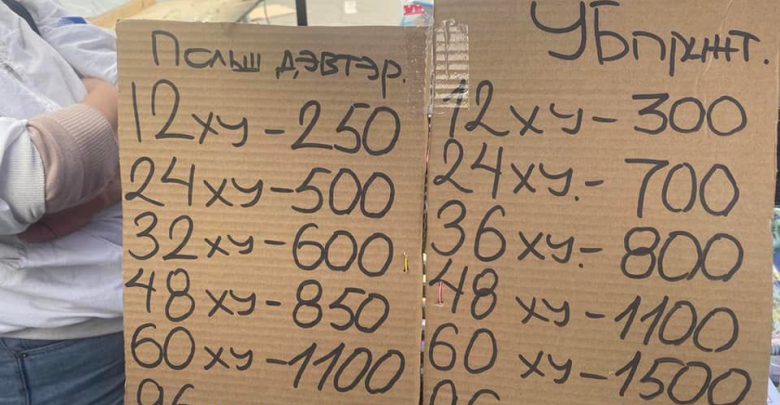 Польш дэвтэр.
12ху-250
24ху-500
32ху-600
48ху-850
60ху-1100
96
УБпринт.
12ху-300
24ху.-700
36ху.-800
48 ху-1100
60 ху-1500
96